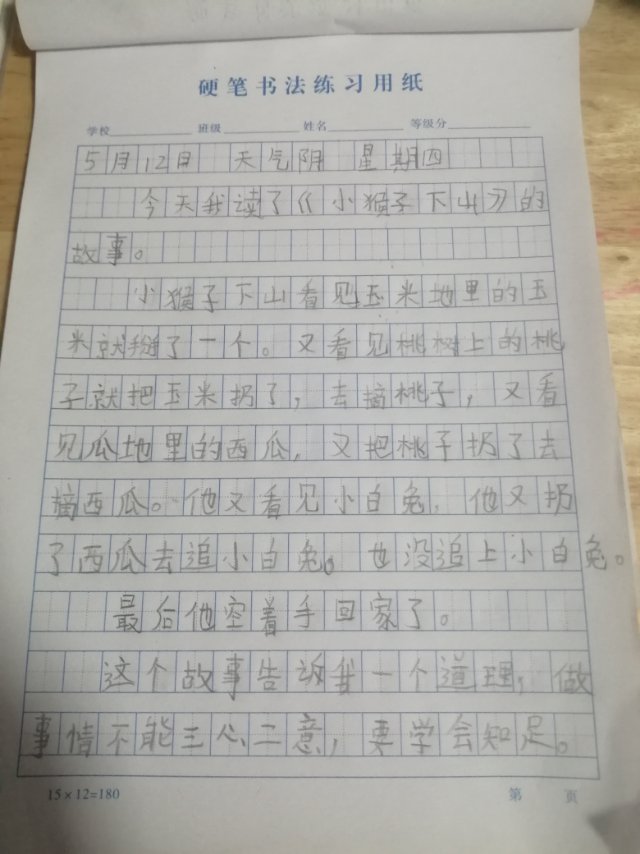 硬笔书法练习用纸
学校 班级 姓名 等级分
5月12日 天气阴 星期四
今天我读了《小猴子下山》的
故事。
小猴子下山看见玉米地里的玉
米就掰了一个。又看见桃树上的桃
子就把玉米扔了，去摘桃子，又看
见瓜地里的西瓜，又把桃子扔了去
摘西瓜。他又看见小白兔，他又扔
了西瓜去追小白兔。也没追上小白兔。
最后他空着手回家了。
这个故事告诉我一个道理，做
事情不能三心二意，要学会知足。
15×12=180 第 页